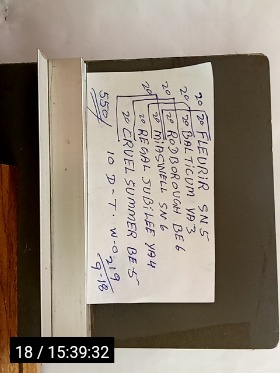 20 20 FLEURIR SN 5
20 20 BALTICUM YA 3
20 20 RODBOROUGH BE 6
20 20 MIASWELL SN 6
20 REGAL JUBILEE YA4
20 CRUEL SUMMER BE-5
550/
10 D-T. W-0
18 / 15:39:32